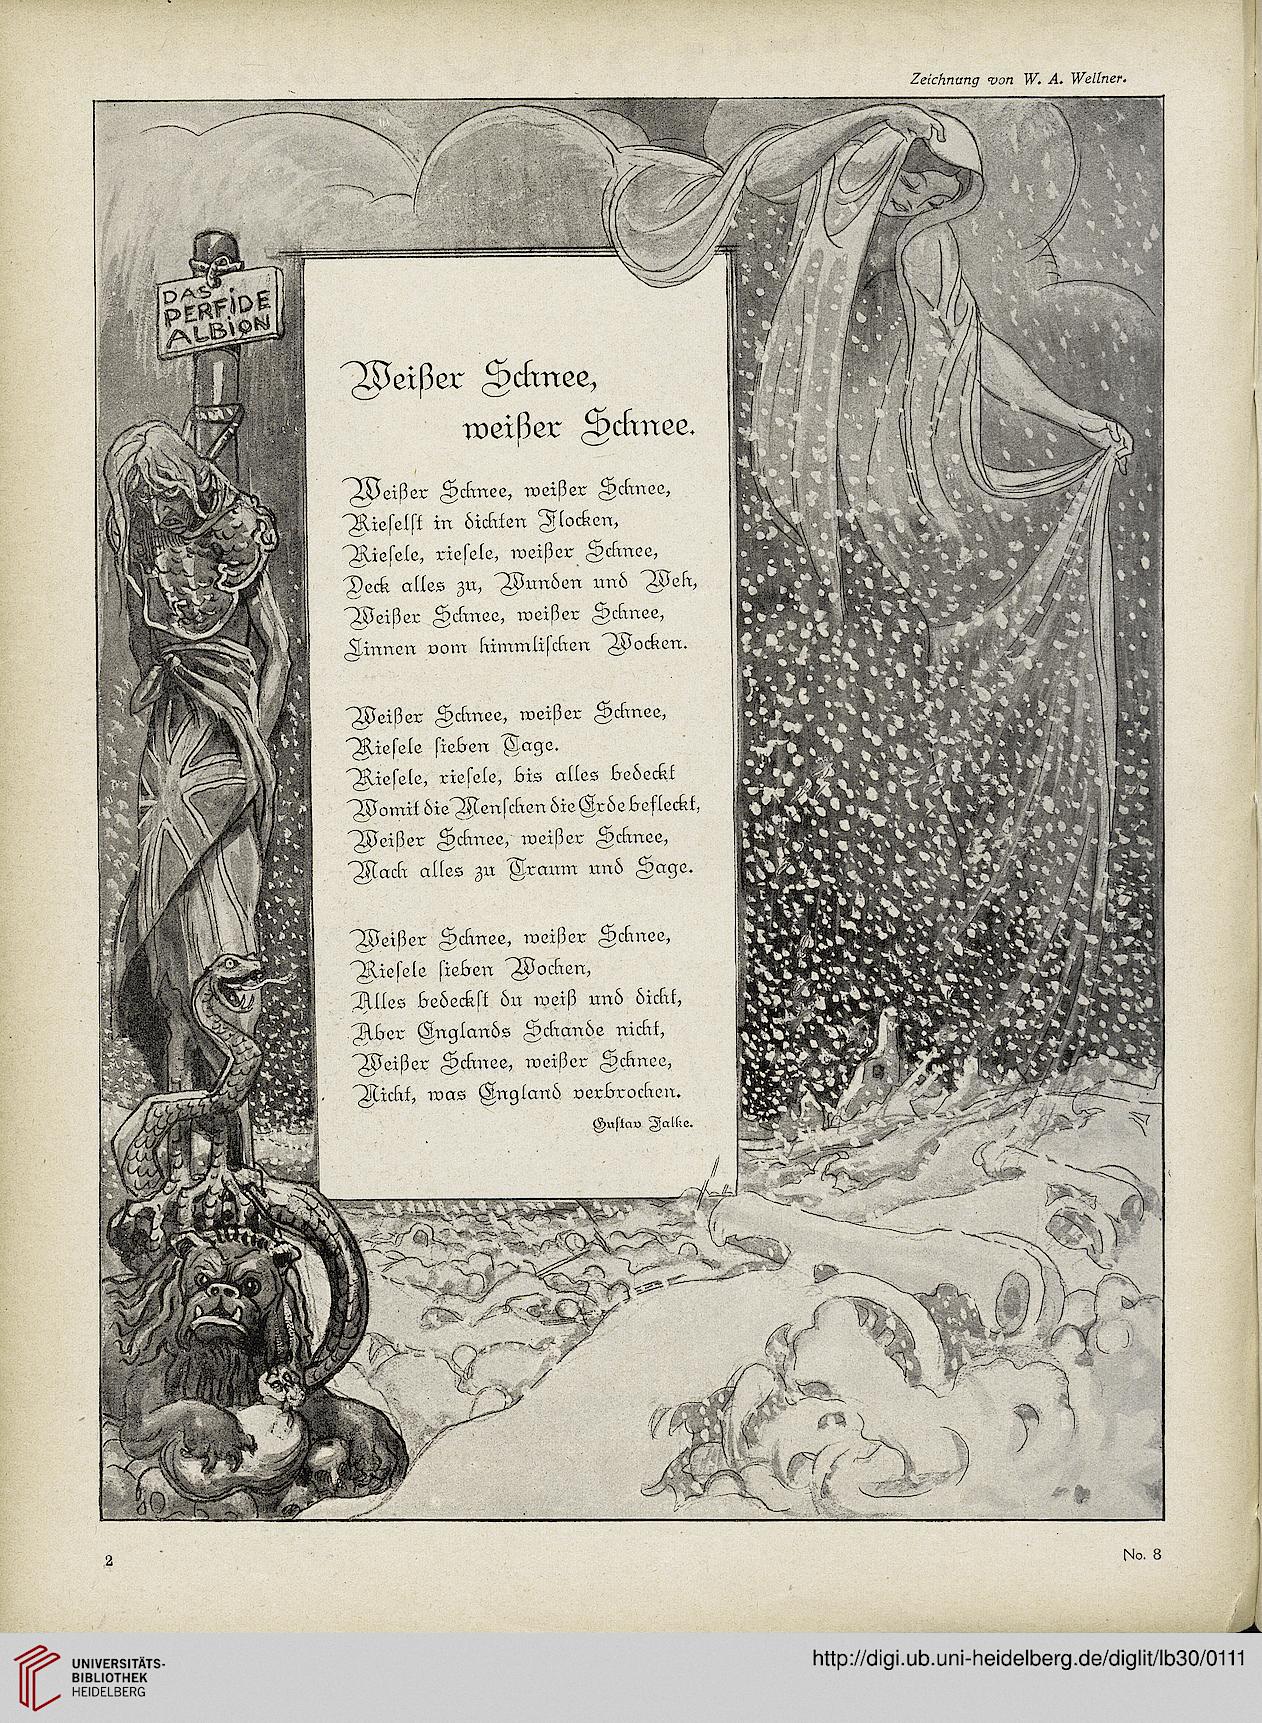 Zeichnung von W. A. Wellner.
DAS
PERFIDE
ALBION
Weißer Schnee,
weißer Schnee.
Weißer Schnee, weißer Schnee,
Rieselst in dichten Flocken,
Riesele, riesele, weißer Schnee,
Deck alles zu, Wunden und Weh,
Weißer Schnee, weißer Schnee,
Linnen vom himmlischen Wocken.
Weißer Schnee, weißer Schnee,
Riesele sieben Tage.
Riesele, riesele, bis alles bedeckt
Womit die Menschen die Erde befleckt,
Weißer Schnee, weißer Schnee,
Mach alles zu Traum und Sage.
Weißer Schnee, weißer Schnee,
Riesele sieben Wochen,
Alles bedeckst du weiß und dicht,
Aber Englands Schande nicht,
Weißer Schnee, weißer Schnee,
Nicht, was England verbrochen.
Gustav Falke.
2
No. 8
UNIVERSITÄTS-
BIBLIOTHEK
HEIDELBERG
http://digi.ub.uni-heidelberg.de/diglit/lb30/0111